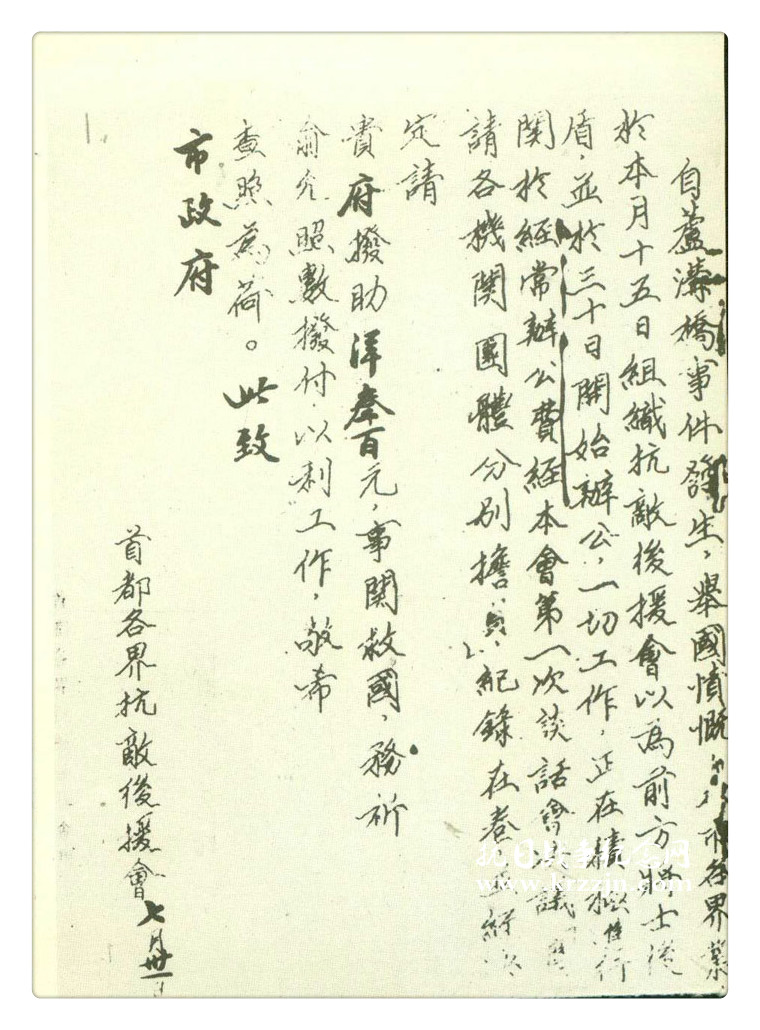 自蘆溝橋事件發生，舉國憤慨，市各界業
於本月十五日組織抗敵後援會以為前方將士後
盾，並於三十日開始辦公，一切工作，正在積極進行
関於經常辦公費經本會第一次談話會決議
請各機関團體分別擔負、紀錄在卷並經
定請
貴府撥助洋叁百元，事関救國，務祈
俞允照數撥付，以利工作，敬希
查照為荷。此致
市政府
首都各界抗敵後援會七月卅一日
抗日戰爭紀念网
www.krzzjn.com